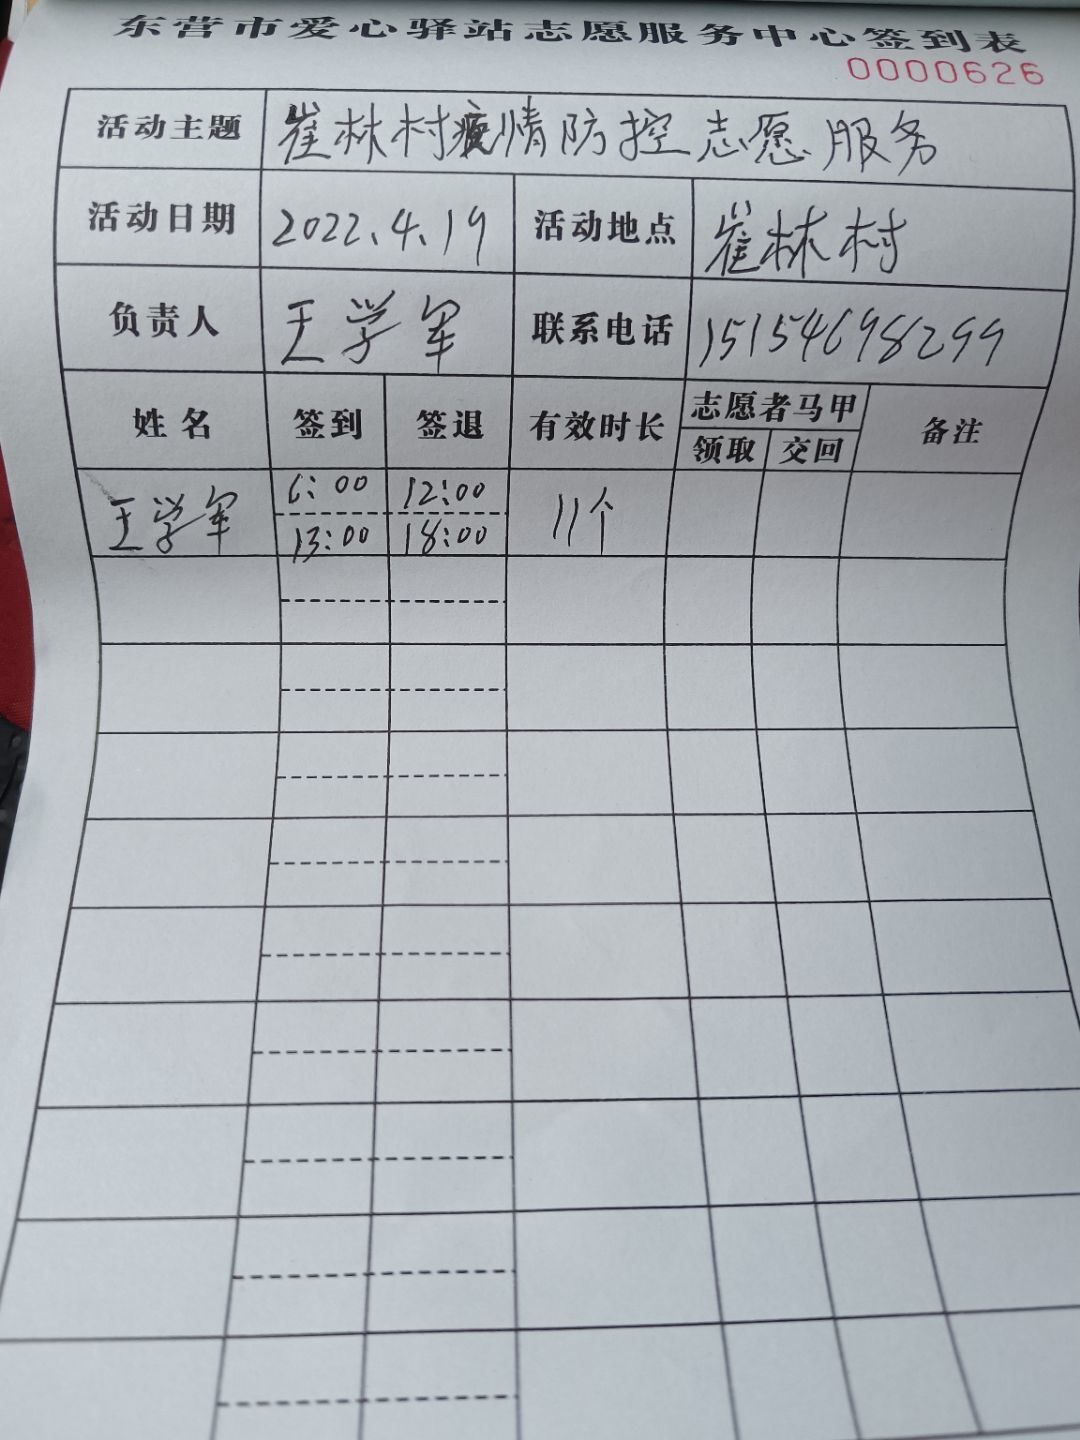 东营市爱心驿站志愿服务中心签到表
0000626
活动主题 崔林村疫情防控志愿服务
活动日期 2022、4、19 活动地点 崔林村
负责人 王学军 联系电话 15154698299
姓名 签到 签退 有效时长 志愿者马甲 备注
领取 交回
王学军 6:00 12:00 11个
13:00 18:00